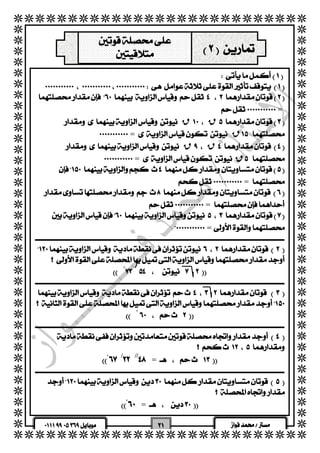 على محصلة قوتين
متلاقيتين
تمارين ( ٢ )
( ١ ) أكمل ما يأتى :
( ١ ) يتوقف تأثير القوة على ثلاثة عوامل هى : ............ ، ............ ، ............
( ٢ ) قوتان مقدارهما ٢ ، ٤ ثقل جم وقياس الزاوية بينهما ٦٠ ْ فإن مقدار محصلتهما
............ ثقل جم
( ٣ ) قوتان مقدارهما ٥ ، ١٠ نيوتن وقياس الزاوية بينهما ى ومقدار
محصلتهما ١٥ نيوتن تكون قياس الزاوية ى = ............
( ٤ ) قوتان مقدارهما ٤ ، ٩ نيوتن وقياس الزاوية بينهما ى ومقدار
محصلتهما ٥ نيوتن تكون قياس الزاوية ى = ............
( ٥ ) قوتان متساويتان ومقدار كل منهما ٤ ث كجم والزاوية بينهما ١٥٠ ْ فإن
محصلتهما = ............ ثقل كجم
( ٦ ) قوتان متساويتان ومقدار كل منهما ٨ ث جم ومقدار محصلتها تساوى مقدار
أحداهما فإن محصلتهما = ............ ثقل جم
( ٧ ) قوتان مقدارهما ٣ ، ٥ نيوتن وقياس الزاوية بينهما ٦٠ ْ فإن قياس الزاوية بين
محصلتهما والقوة الأولى = ............
( ٢ ) قوتان مقدارهما ٢ ، ٦ نيوتن تؤثران فى نقطة مادية وقياس الزاوية بينهما ١٢٠ ْ
أوجد مقدار محصلتهما وقياس الزاوية التى تميل بها المحصلة على القوة الأولى ؟
( ٣ ) قوتان مقدارهما ٢ √٣ ، ٤ ث جم تؤثران فى نقطة مادية وقياس الزاوية بينهما
١٥٠ ْ أوجد مقدار محصلتهما وقياس الزاوية التى تميل بها المحصلة على القوة الثانية ؟
(( ٢ ث جم ، ٦٠ ْ ))
( ٤ ) أوجد مقدار واتجاه محصلة قوتين متعامدتين وتؤثران ففى نقطة مادية
ومقدارهما ٥ ، ١٢ ث كجم ؟
(( ١٣ ث جم ، هـ = ٤٨ ً ٢٢ َ ٦٧ ْ ))
( ٥ ) قوتان متساويتان مقدار كل منهما ٣٠ دين وقياس الزاوية بينهما ١٢٠ ْ أوجد
مقدار واتجاه المحصلة ؟
(( ٣٠ دين ، هـ = ٦٠ ْ ))
مستر / محمد فواز
٢١
موبايل ٣٦٩ ٠٥ ٩٩ ٠١١١